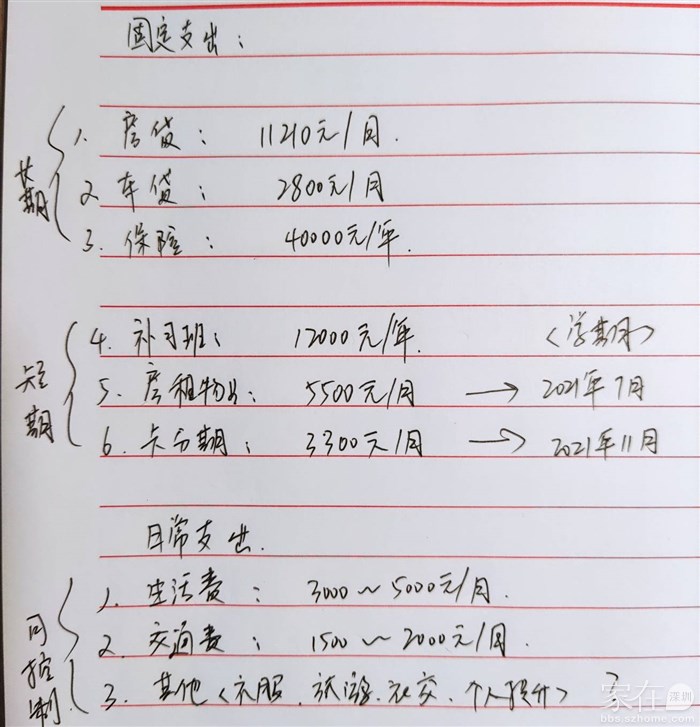 固定支出：
长期
1. 房贷： 11210元/月.
2 车贷： 2800元/月
3. 保险： 40000元/年.
短期
4. 补习班： 12000元/年. <学期>
5. 房租物业： 5500元/月 → 2021年7月
6. 卡分期： 3300元/月 → 2021年11月
日常支出.
可控制
1. 生活费： 3000～5000元/月.
2. 交通费： 1500～2000元/月.
3. 其他<衣服、旅游、社交、个人提升> ?
家在深圳
bbs.szhome.com